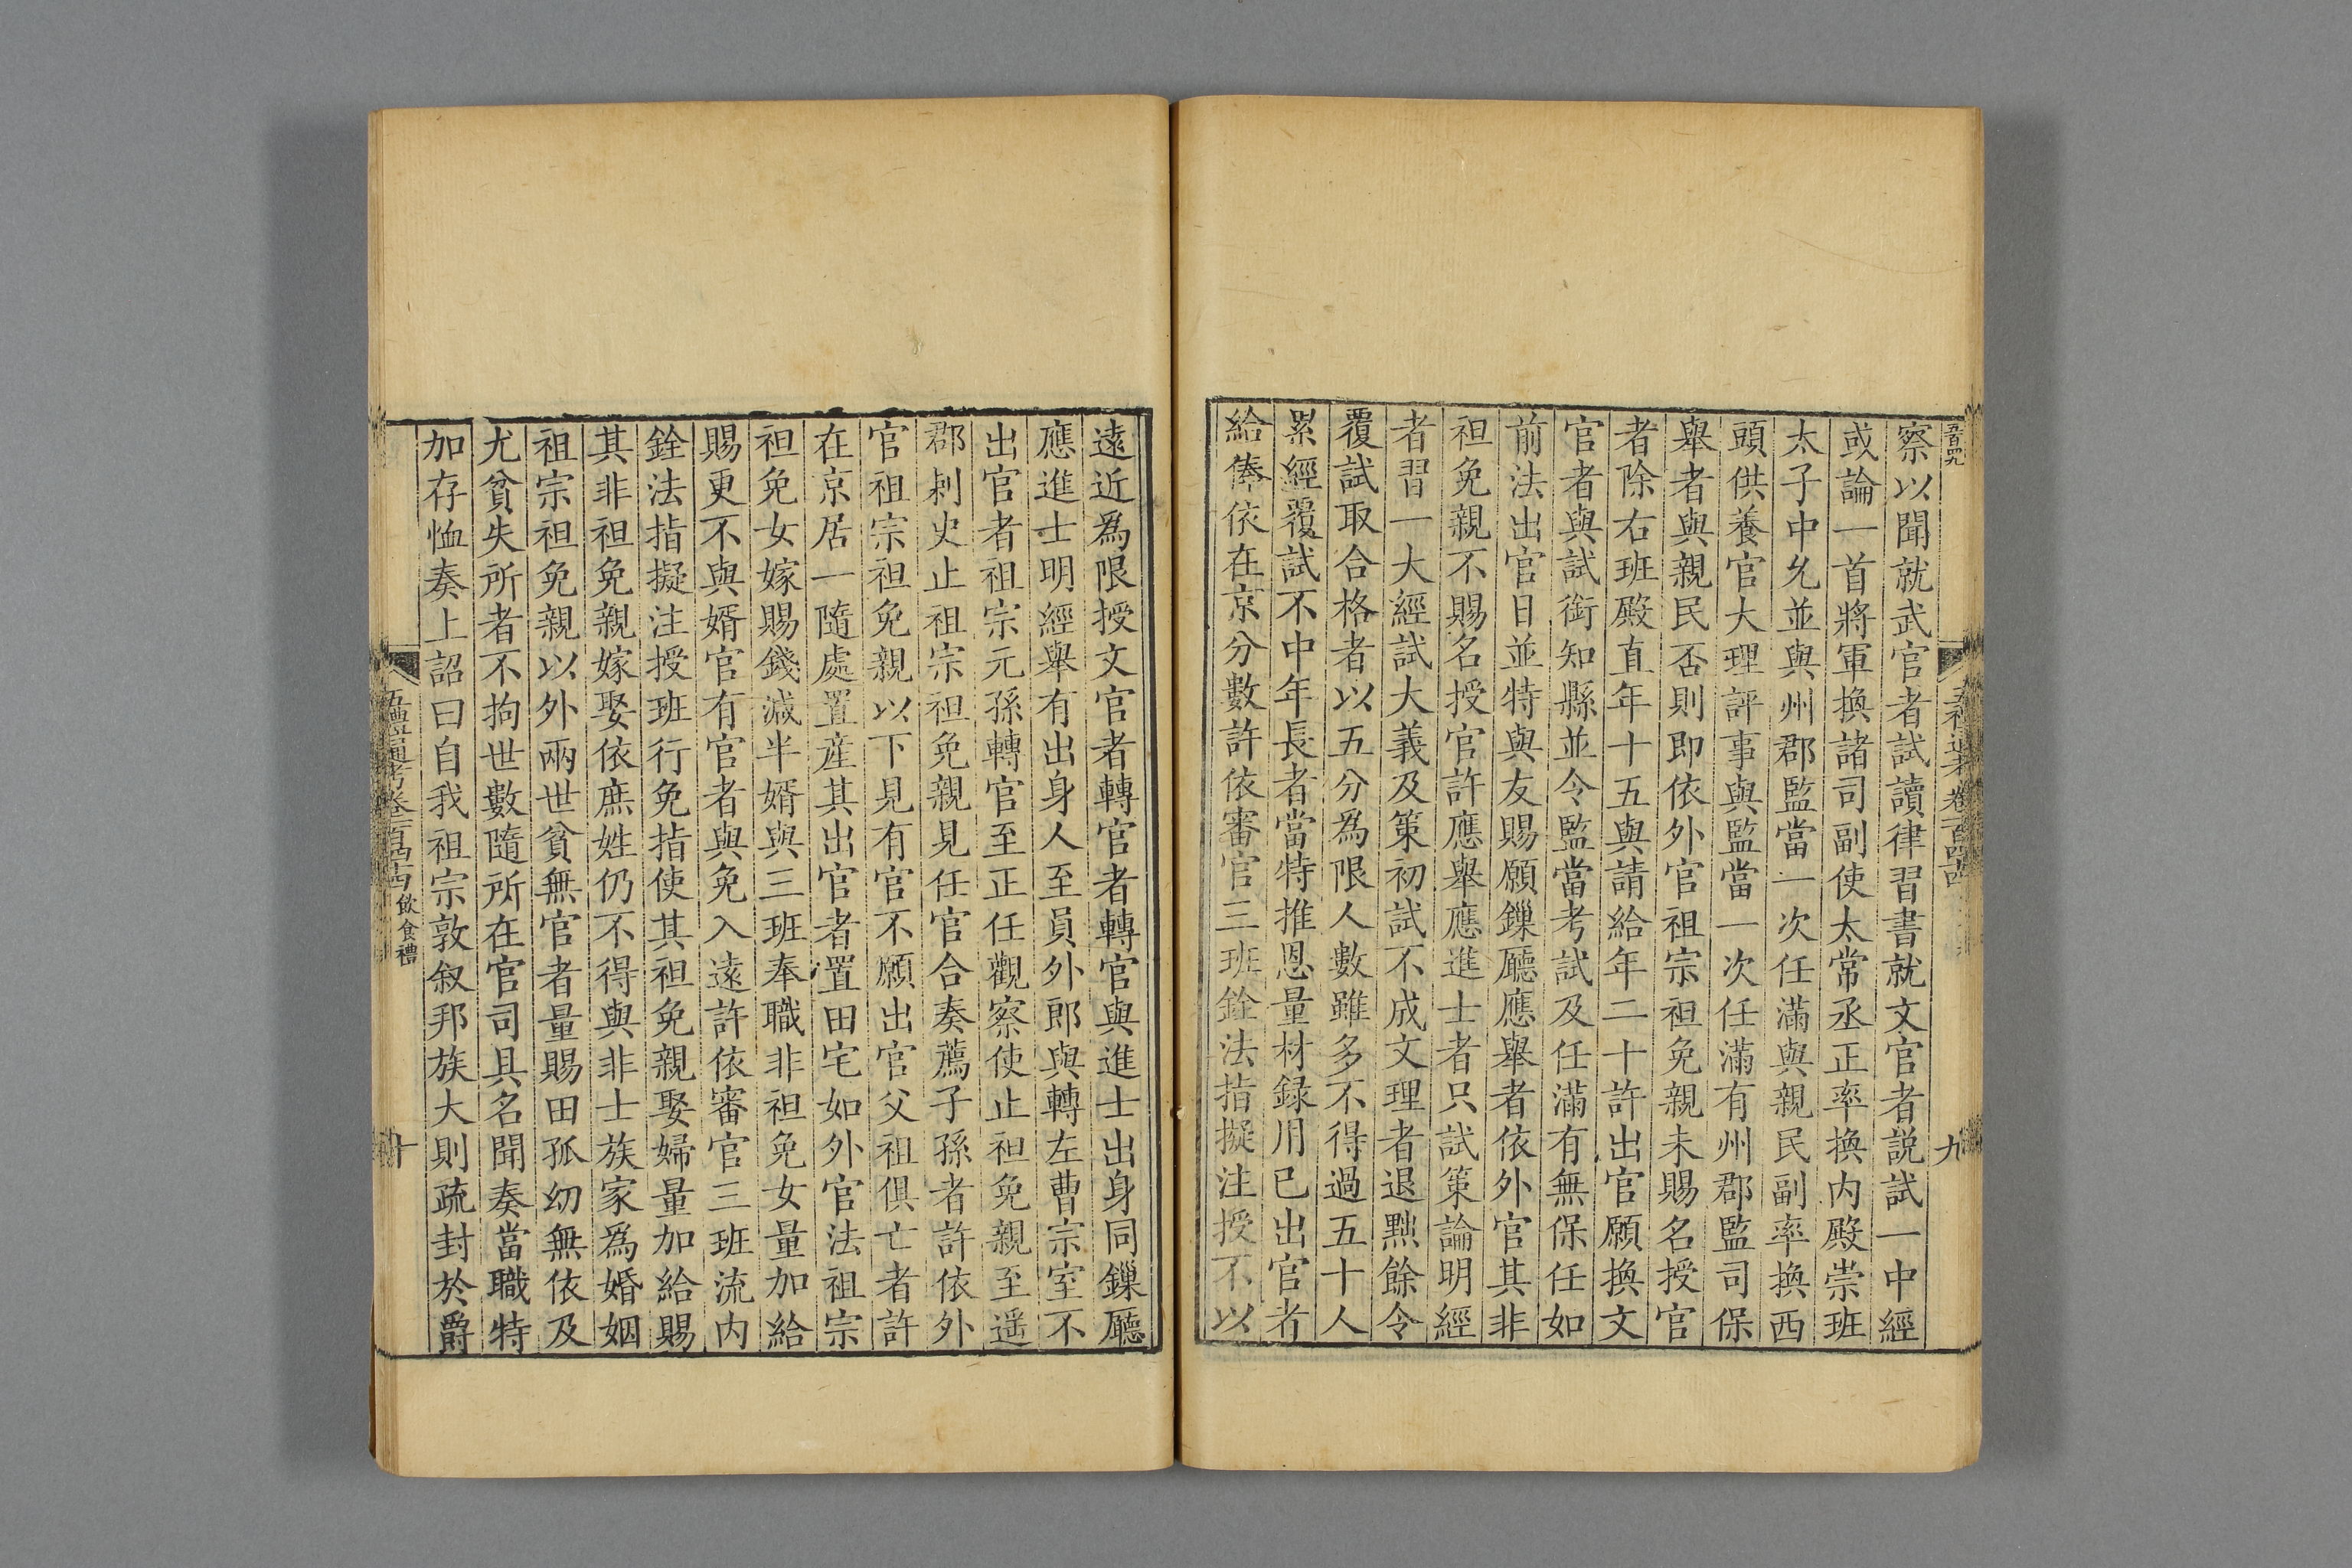 察以聞就武官者試讀律習書就文官者説試一中經
或論一首將軍換諸司副使太常丞正率換内殿崇班
太子中允並與州郡監當一次任滿與親民副率換西
頭供養官大理評事與監當一次任滿有州郡監司保
舉者與親民否則即依外官祖宗袒免親未賜名授官
者除右班殿直年十五與請給年二十許出官願換文
官者與試銜知縣並令監當考試及任滿有無保任如
前法出官日並特與友賜願鏁廳應舉者依外官其非
袒免親不賜名授官許應舉應進士者只試策論明經
者習一大經試大義及策初試不成文理者退黜餘令
覆試取合格者以五分為限人數雖多不得過五十人
累經覆試不中年長者當特推恩量材録用已出官者
給俸依在京分數許依審官三班銓法指擬注授不以
九
遠近爲限授文官者轉官者轉官與進士出身同鏁廳
應進士明經舉有出身人至員外郎與轉左曹宗室不
出官者祖宗元孫轉官至正任觀察使止袒免親至遥
郡刺史止祖宗袒免親見任官合奏薦子孫者許依外
官祖宗袒免親以下見有官不願出官父祖俱亡者許
在京居一隨處置産其出官者置田宅如外官法祖宗
袒免女嫁賜錢減半婿與三班奉職非袒免女量加給
賜更不與婿官有官者與免入遠許依審官三班流内
銓法指擬注授班行免指使其袒免親娶婦量加給賜
其非袒免親嫁娶依庶姓仍不得與非士族家爲婚姻
祖宗袒免親以外兩世貧無官者量賜田孤幼無依及
尤貧失所者不拘世數隨所在官司具名聞奏當職特
加存恤奏上詔曰自我祖宗敦叙邦族大則疏封於爵
五禮通考卷一百四十四 飲食禮
十